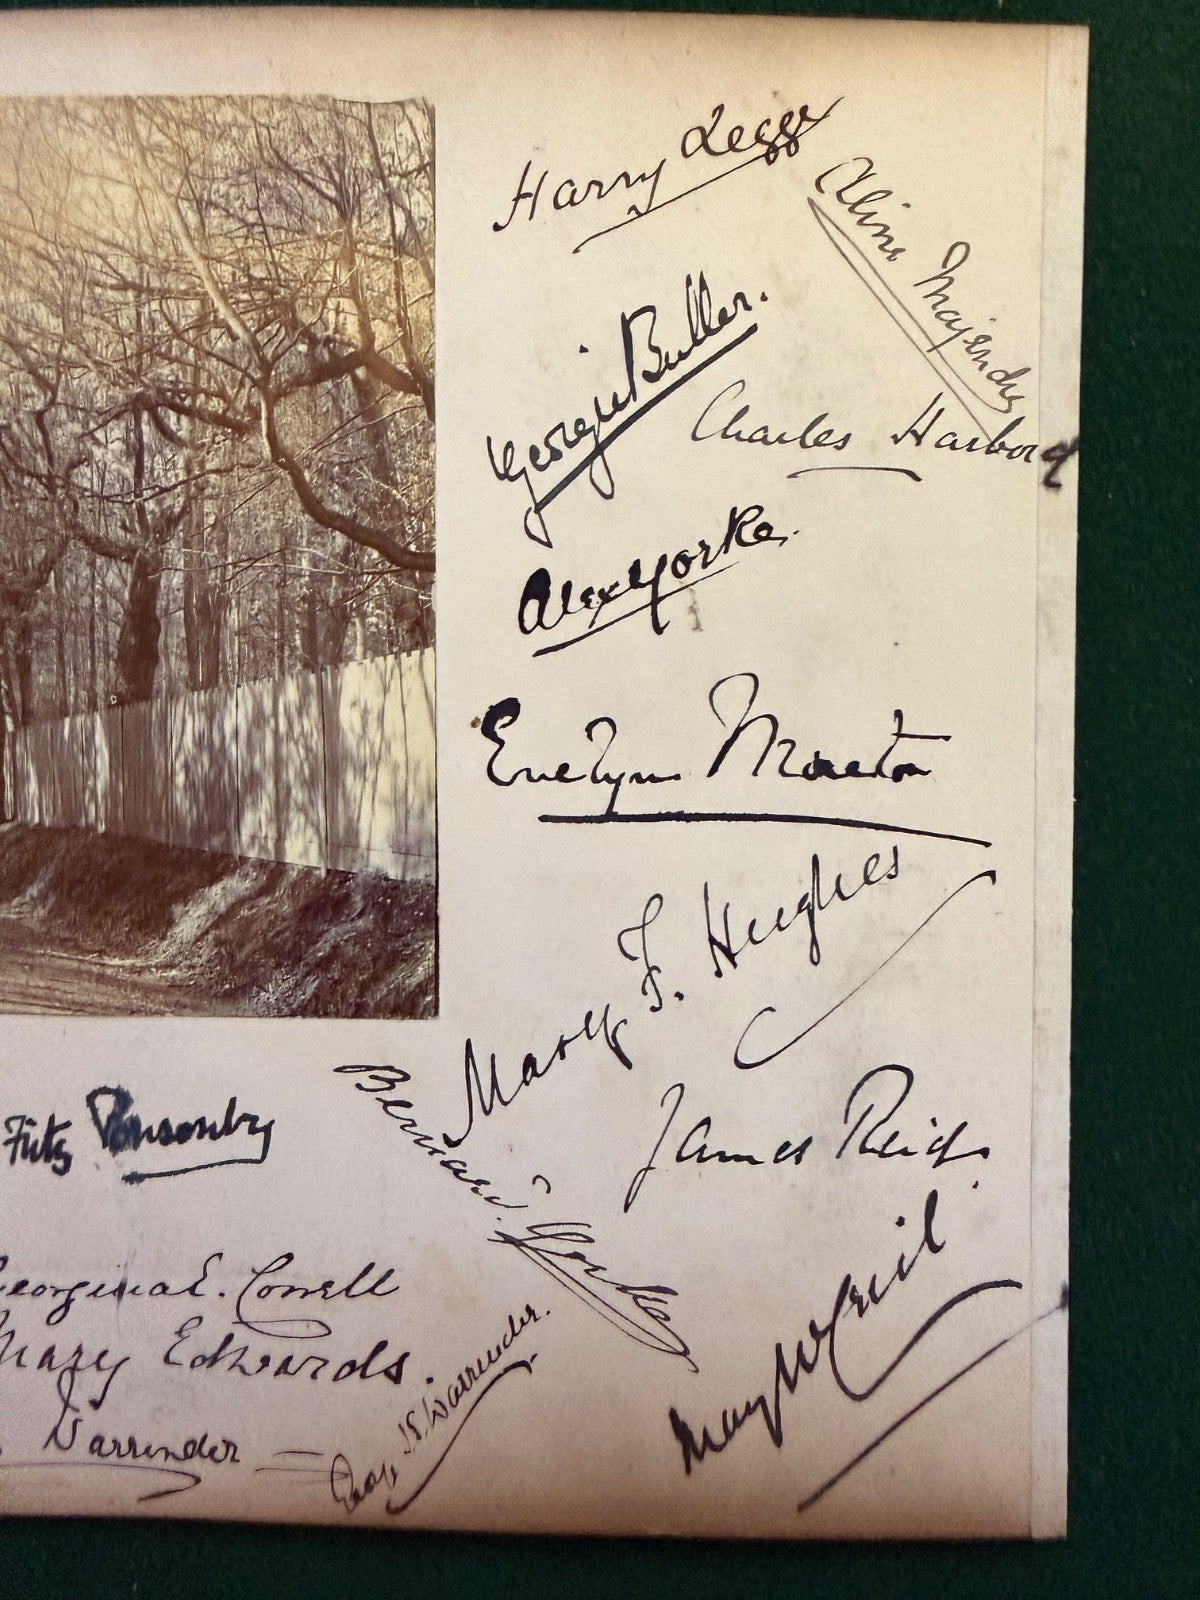 Harry Legge
Aline Majendie
Georgie Buller.
Charles Harbord
Alex Yorke.
Evelyn Moreton
Mary F. Hughes
Fritz Ponsonby
Bernard Yorke
James Reid.
Georgina E. Cowell
Mary Edwards.
Warrender
Geo. Warrender.
Mary